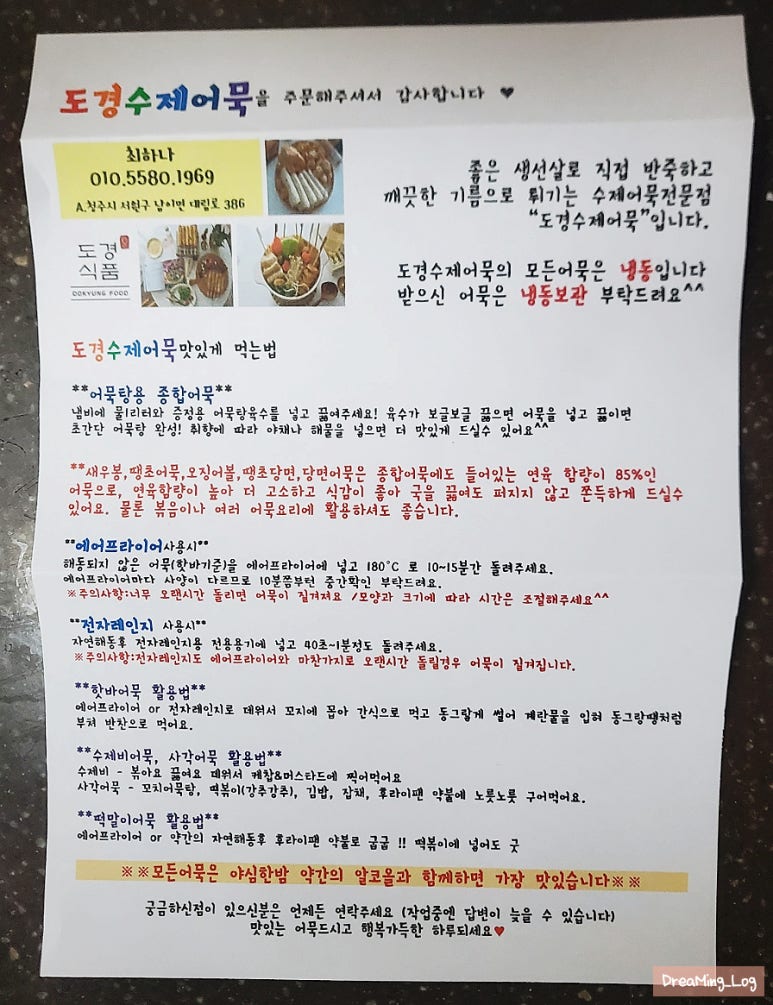 도경수제어묵을 주문해주셔서 감사합니다 ♥
최하나
010.5580.1969
A.청주시 서원구 남이면 대림로 386
좋은 생선살로 직접 반죽하고
깨끗한 기름으로 튀기는 수제어묵전문점
"도경수제어묵"입니다.
도경
식품
DOKYUNG FOOD
도경수제어묵의 모든어묵은 냉동입니다
받으신 어묵은 냉동보관 부탁드려요^^
도경수제어묵맛있게 먹는법
**어묵탕용 종합어묵**
냄비에 물1리터와 증정용 어묵탕육수를 넣고 끓여주세요! 육수가 보글보글 끓으면 어묵을 넣고 끓이면
초간단 어묵탕 완성! 취향에 따라 야채나 해물을 넣으면 더 맛있게 드실수 있어요^^
**새우봉,땡초어묵,오징어볼,땡초당면,당면어묵은 종합어묵에도 들어있는 연육 함량이 85%인
어묵으로, 연육함량이 높아 더 고소하고 식감이 좋아 국을 끓여도 퍼지지 않고 쫀득하게 드실수
있어요. 물론 볶음이나 여러 어묵요리에 활용하셔도 좋습니다.
**에어프라이어사용시**
해동되지 않은 어묵(핫바기준)을 에어프라이어에 넣고 180°C 로 10~15분간 돌려주세요.
에어프라이어마다 사양이 다르므로 10분쯤부턴 중간확인 부탁드려요.
※주의사항:너무 오랜시간 돌리면 어묵이 질겨져요 /모양과 크기에 따라 시간은 조절해주세요^^
**전자레인지 사용시**
자연해동후 전자레인지용 전용용기에 넣고 40초~1분정도 돌려주세요.
※주의사항:전자레인지도 에어프라이어와 마찬가지로 오랜시간 돌릴경우 어묵이 질겨집니다.
**핫바어묵 활용법**
에어프라이어 or 전자레인지로 데워서 꼬지에 꼽아 간식으로 먹고 동그랗게 썰어 계란물을 입혀 동그랑땡처럼
부쳐 반찬으로 먹어요.
**수제비어묵, 사각어묵 활용법**
수제비 - 볶아요 끓여요 데워서 케찹&머스타드에 찍어먹어요
사각어묵 - 꼬치어묵탕, 떡볶이(강추강추), 김밥, 잡채, 후라이팬 약불에 노릇노릇 구어먹어요.
**떡말이어묵 활용법**
에어프라이어 or 약간의 자연해동후 후라이팬 약불로 굽굽 !! 떡볶이에 넣어도 굿
※※모든어묵은 야심한밤 약간의 알코올과 함께하면 가장 맛있습니다※※
궁금하신점이 있으신분은 언제든 연락주세요 (작업중엔 답변이 늦을 수 있습니다)
맛있는 어묵드시고 행복가득한 하루되세요♥
DreaMing_Log